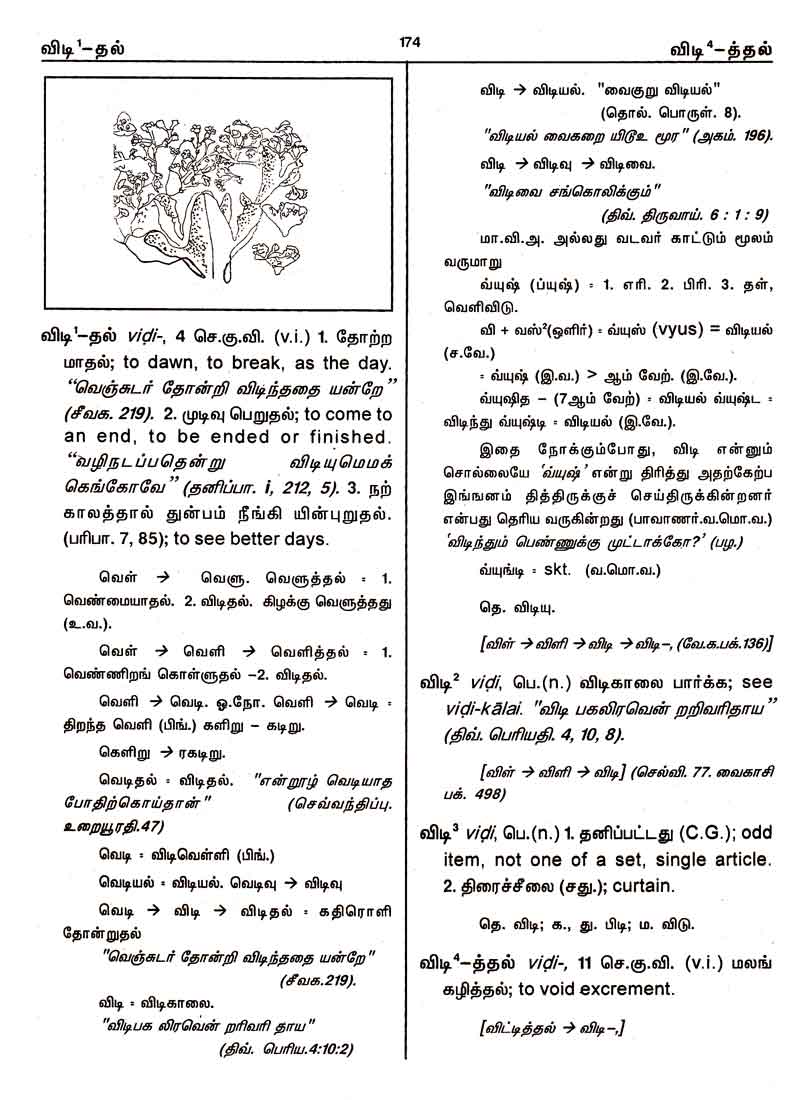 விடி¹–தல்
174
விடி⁴–த்தல்
விடி¹–தல் viḍi-, 4 செ.கு.வி. (v.i.) 1. தோற்ற
மாதல்; to dawn, to break, as the day.
“வெஞ்சுடர் தோன்றி விடிந்ததை யன்றே”
(சீவக. 219). 2. முடிவு பெறுதல்; to come to
an end, to be ended or finished.
“வழிநடப்பதென்று விடியுமெமக்
கெங்கோவே” (தனிப்பா. i, 212, 5). 3. நற்
காலத்தால் துன்பம் நீங்கி யின்புறுதல்.
(பரிபா. 7, 85); to see better days.
வெள் → வெளு. வெளுத்தல் = 1.
வெண்மையாதல். 2. விடிதல். கிழக்கு வெளுத்தது
(உ.வ.).
வெள் → வெளி → வெளித்தல் = 1.
வெண்ணிறங் கொள்ளுதல் –2. விடிதல்.
வெளி → வெடி. ஒ.நோ. வெளி → வெடி =
திறந்த வெளி (பிங்.) களிறு – கடிறு.
கெளிறு → ரகடிறு.
வெடிதல் = விடிதல். "என்றூழ் வெடியாத
போதிற்கொய்தான்" (செவ்வந்திப்பு.
உறையூரதி.47)
வெடி = விடிவெள்ளி (பிங்.)
வெடியல் = விடியல். வெடிவு → விடிவு
வெடி → விடி → விடிதல் = கதிரொளி
தோன்றுதல்
"வெஞ்சுடர் தோன்றி விடிந்ததை யன்றே"
(சீவக.219).
விடி = விடிகாலை.
"விடிபக லிரவென் றரிவரி தாய"
(திவ். பெரிய.4:10:2)
விடி → விடியல். "வைகுறு விடியல்"
(தொல். பொருள். 8).
"விடியல் வைகறை யிடூஉ மூர" (அகம். 196).
விடி → விடிவு → விடிவை.
"விடிவை சங்கொலிக்கும்"
(திவ். திருவாய். 6 : 1 : 9)
மா.வி.அ. அல்லது வடவர் காட்டும் மூலம்
வருமாறு
வ்யுஷ் (ப்யுஷ்) = 1. எரி. 2. பிரி. 3. தள்,
வெளிவிடு.
வி + வஸ்²(ஒளிர்) = வ்யுஸ் (vyus) = விடியல்
(ச.வே.)
= வ்யுஷ் (இ.வ.) > ஆம் வேற். (இ.வே.).
வ்யுஷித – (7ஆம் வேற்) = விடியல் வ்யுஷ்ட =
விடிந்து வ்யுஷ்டி = விடியல் (இ.வே.).
இதை நோக்கும்போது, விடி என்னும்
சொல்லையே ‘வ்யுஷ்’ என்று திரித்து அதற்கேற்ப
இங்ஙனம் தித்திருக்குச் செய்திருக்கின்றனர்
என்பது தெரிய வருகின்றது (பாவாணர்.வ.மொ.வ.)
‘விடிந்தும் பெண்ணுக்கு முட்டாக்கோ?’ (பழ.)
வ்யுங்டி = skt. (வ.மொ.வ.)
தெ. விடியு.
[விள் → விளி → விடி → விடி–, (வே.க.பக்.136)]
விடி² viḍi, பெ.(n.) விடிகாலை பார்க்க; see
viḍi-kālai. "விடி பகலிரவென் றறிவரிதாய”
(திவ். பெரியதி. 4, 10, 8).
[விள் → விளி → விடி] (செல்வி. 77. வைகாசி
பக். 498)
விடி³ viḍi, பெ.(n.) 1. தனிப்பட்டது (C.G.); odd
item, not one of a set, single article.
2. திரைச்சீலை (சது.); curtain.
தெ. விடி; க., து. பிடி; ம. விடு.
விடி⁴–த்தல் viḍi-, 11 செ.கு.வி. (v.i.) மலங்
கழித்தல்; to void excrement.
[விட்டித்தல் → விடி–,]